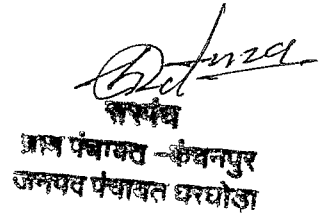 सरपंच
ग्राम पंचायत -कंचनपुर
जनपद पंचायत घरघोड़ा